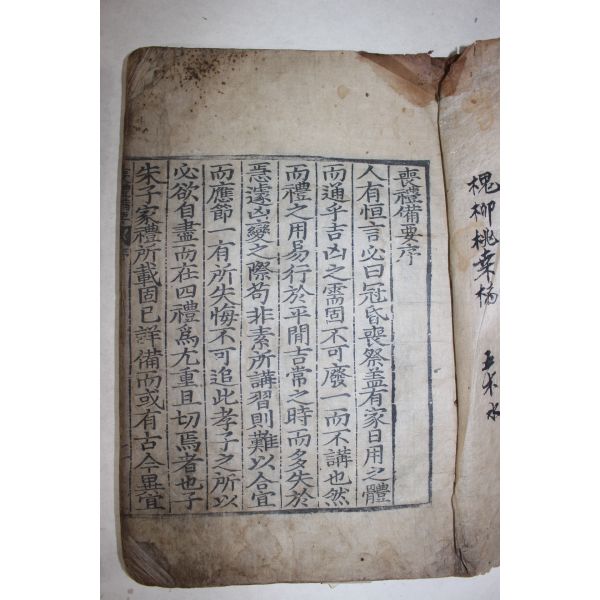 槐柳桃桑楊 五木水
喪禮備要序
人有恒言必曰冠昏喪祭盖有家日用之體
而通乎吉凶之需固不可廢一而不講也然
而禮之用易行於平閒吉常之時而多失於
急遽凶變之際苟非素所講習則難以合宜
而應節一有所失悔不可追此孝子之所以
必欲自盡而在四禮爲尤重且切焉者也子
朱子家禮所載固已詳備而或有古今異宜